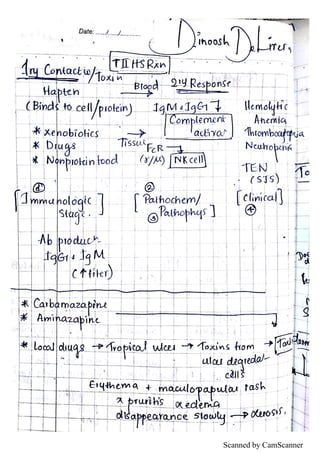 Date: __/__/__
Dinoosh De Livera
T II HS Rxn
1ry Contactic/Toxin
Blood 2ry Response
Hapten IgM + IgG1 ↓ Hemolytic
(Binds to cell/protein) Complement Anemia
activatn Thrombocytopenia
* xenobiotics Neutropenia
* Drugs Tissue FcR
* Nonprotein food (γ/M) NK cell
TEN
(SJS)
① ②
[Immunologic [Pathochem/ [Clinical]
Stage.] ③ Pathophys] ④
Ab product.
IgG1 + IgM
(↑ titer)
* Carbamazapine
* Aminazapine
* Local drugs → Tropical ulcer → Toxins from →
ulcer degredat-
cells
Erythema + maculopapular rash
x pruritis x edema
disappearance slowly → xerosis.
Scanned by CamScanner